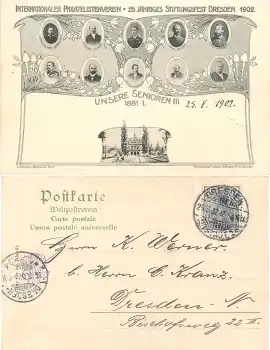 INTERNATIONALER PHILATELISTENVEREIN • 25 JÄHRIGES STIFTUNGSFEST DRESDEN 1902.
UNSERE SENIOREN III.
1881 I.
25. X. 1902.
Postkarte
Weltpostverein
Carte postale
Union postale universelle
DRESDEN
Herrn K. Werner
b. Herrn C. Kranz
Dresden-N
Bischofsweg 22 II